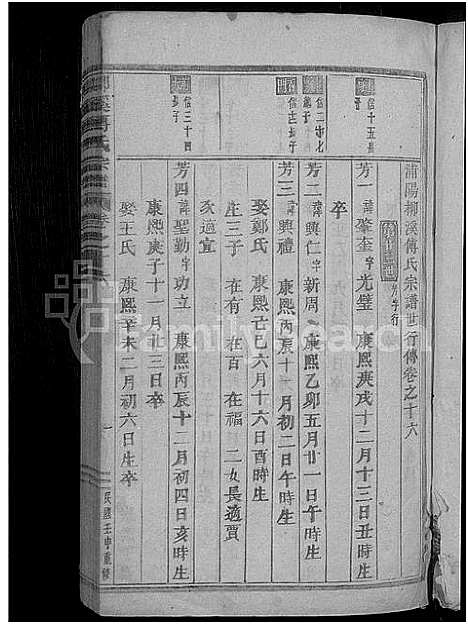 浦陽柳溪傅氏宗譜世行傳卷之十六
芳字行
信十五長子
芳一 諱肇奎 字光璧 康熙庚戌十二月十三日丑時生
卒
信二十七
芳二 諱興仁 字新周 康熙乙卯五月廿一日午時生
芳三 諱興禮 康熙丙辰十一月初二日午時生
娶鄭氏 康熙己巳六月十六日酉時生
生三子 在有 在百 在福 二女長適賈
次適宣
信三十四長子
芳四 諱聖勤 字功立 康熙丙辰十二月初四日亥時生
康熙庚子十一月廿三日卒
娶王氏 康熙辛未二月初六日生卒
柳溪傅氏宗譜 卷之十六
一
民國壬申重修
familysearch